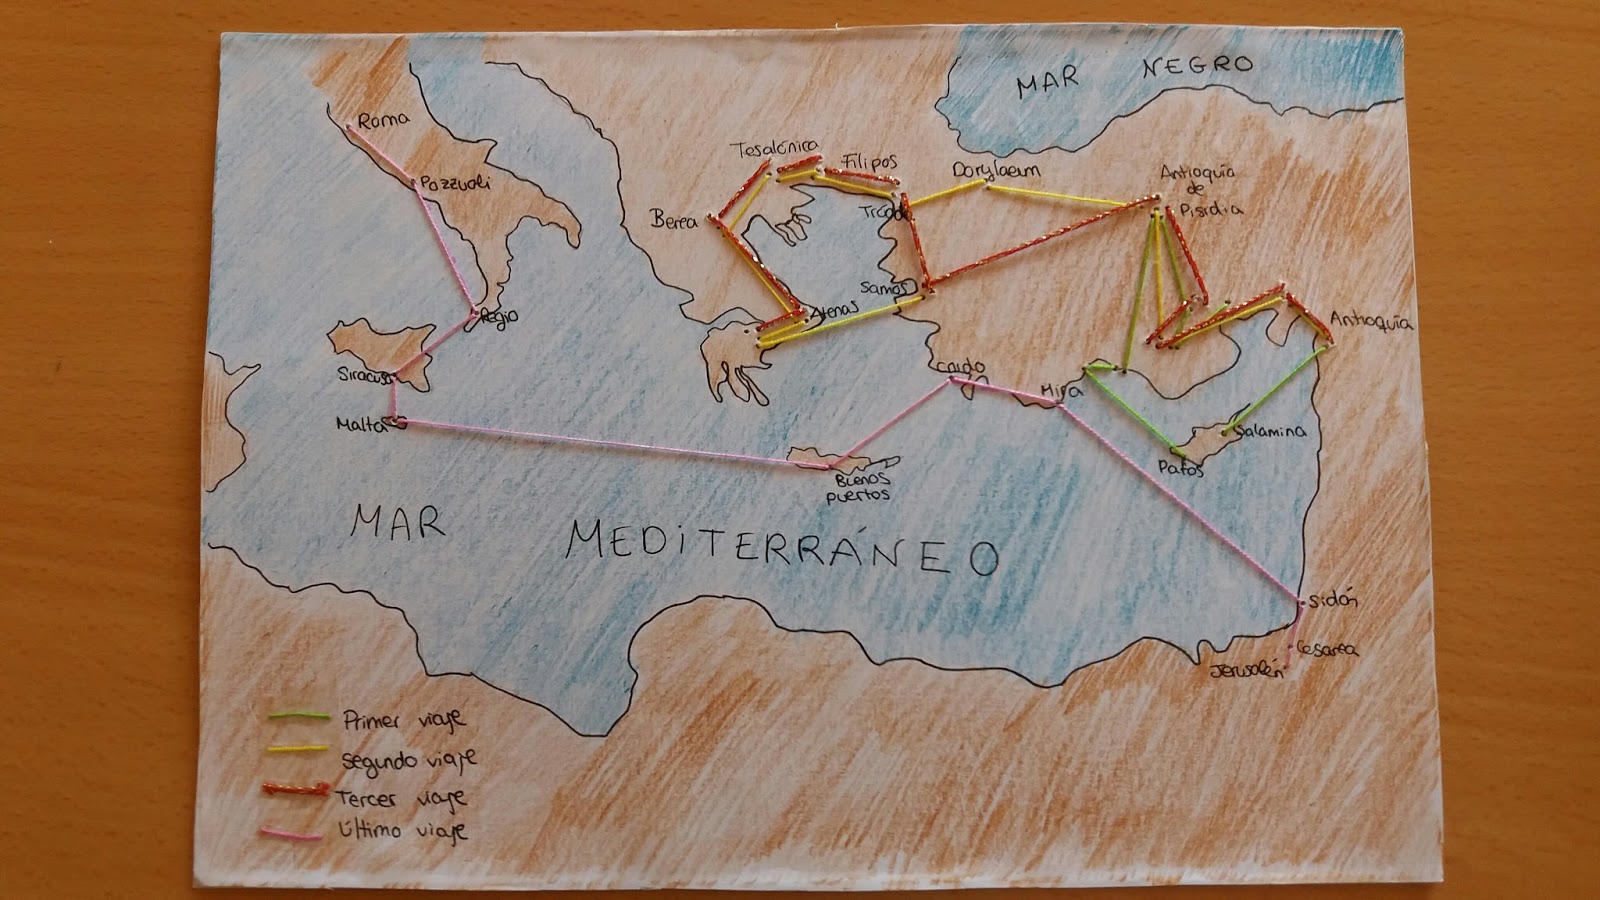 MAR NEGRO
Roma
Pozzuoli
Regio
Siracusa
Malta
Tesalónica
Filipos
Berea
Atenas
Tróade
Samos
Dorylaeum
Antioquía
de
Pisidia
Antioquía
Cnido
Mira
Salamina
Pafos
Buenos
puertos
MAR MEDITERRÁNEO
Sidón
Cesarea
Jerusalén
Primer viaje
Segundo viaje
Tercer viaje
Último viaje